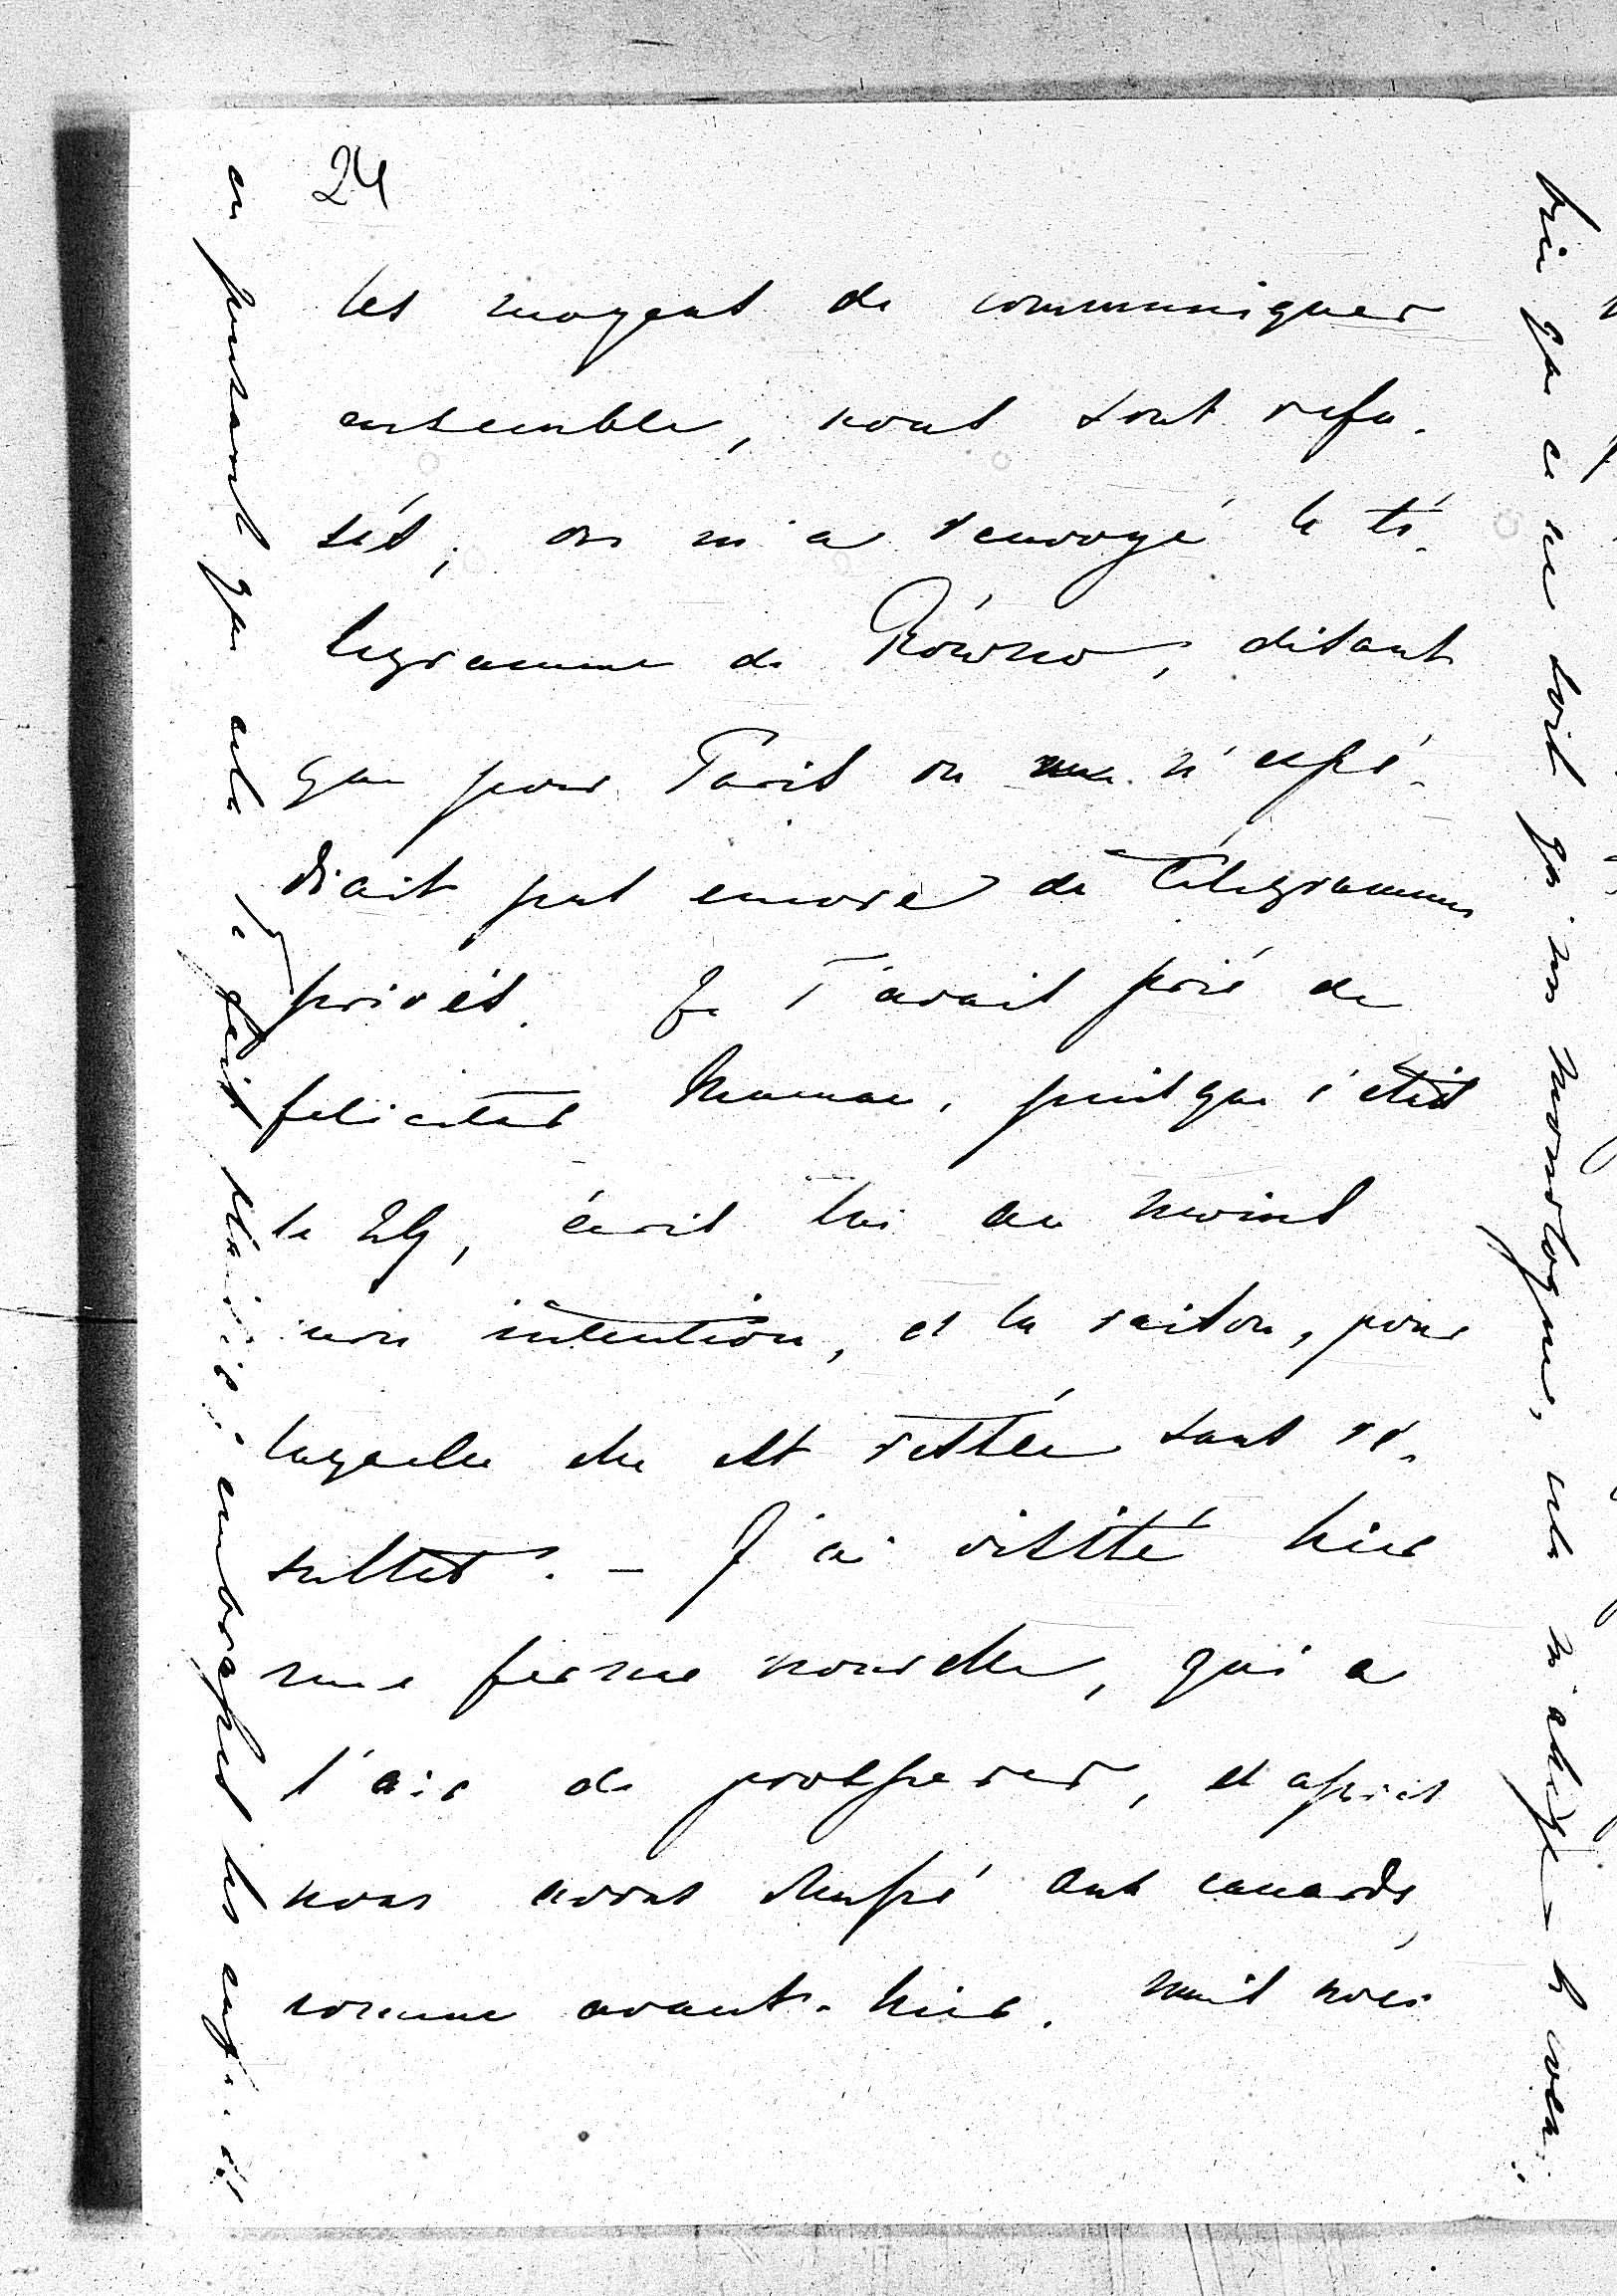 24
les moyens de communiquer
ensemble, nous sont refu-
sés; on m'a renvoyé le té-
legramme de Równo, disant
que pour Paris on n'expé-
diait pas encore de télégrammes
privés. Je t'avais prié de
feliciter Maman, puisque c'était
le 24, écris lui au moins
mon intention, et la raison, pour
laquelle elle est restée sans re-
sultat. - J'ai visité hier
une ferme nouvelle, qui a
l'air de prosperer, et après
nous avons chassé aux canards,
comme avant-hier. Mais voici
en pensant que cela te fait plaisir; embrasse les
brin que ce ne soit qu'un monologue, cela m'abrège le